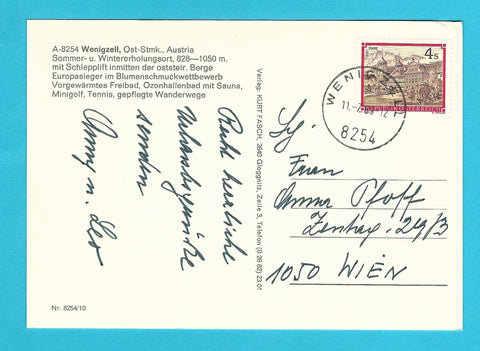 A-8254 Wenigzell, Ost-Stmk., Austria
Sommer- u. Wintererholungsort, 828—1050 m,
mit Schlepplift inmitten der oststeir. Berge
Europasieger im Blumenschmuckwettbewerb
Vorgewärmtes Freibad, Ozonhallenbad mit Sauna,
Minigolf, Tennis, gepflegte Wanderwege
Recht herzliche
Urlaubsgrüße
senden
Anny u. Leo
Nr. 8254/10
Verlag: KURT FASCH, 2640 Gloggnitz, Zeile 3, Telefon (0 26 62) 23 01
4 S
REPUBLIK ÖSTERREICH
WENIGZELL
8254
Frau
Anna Pfoff
1050 WIEN